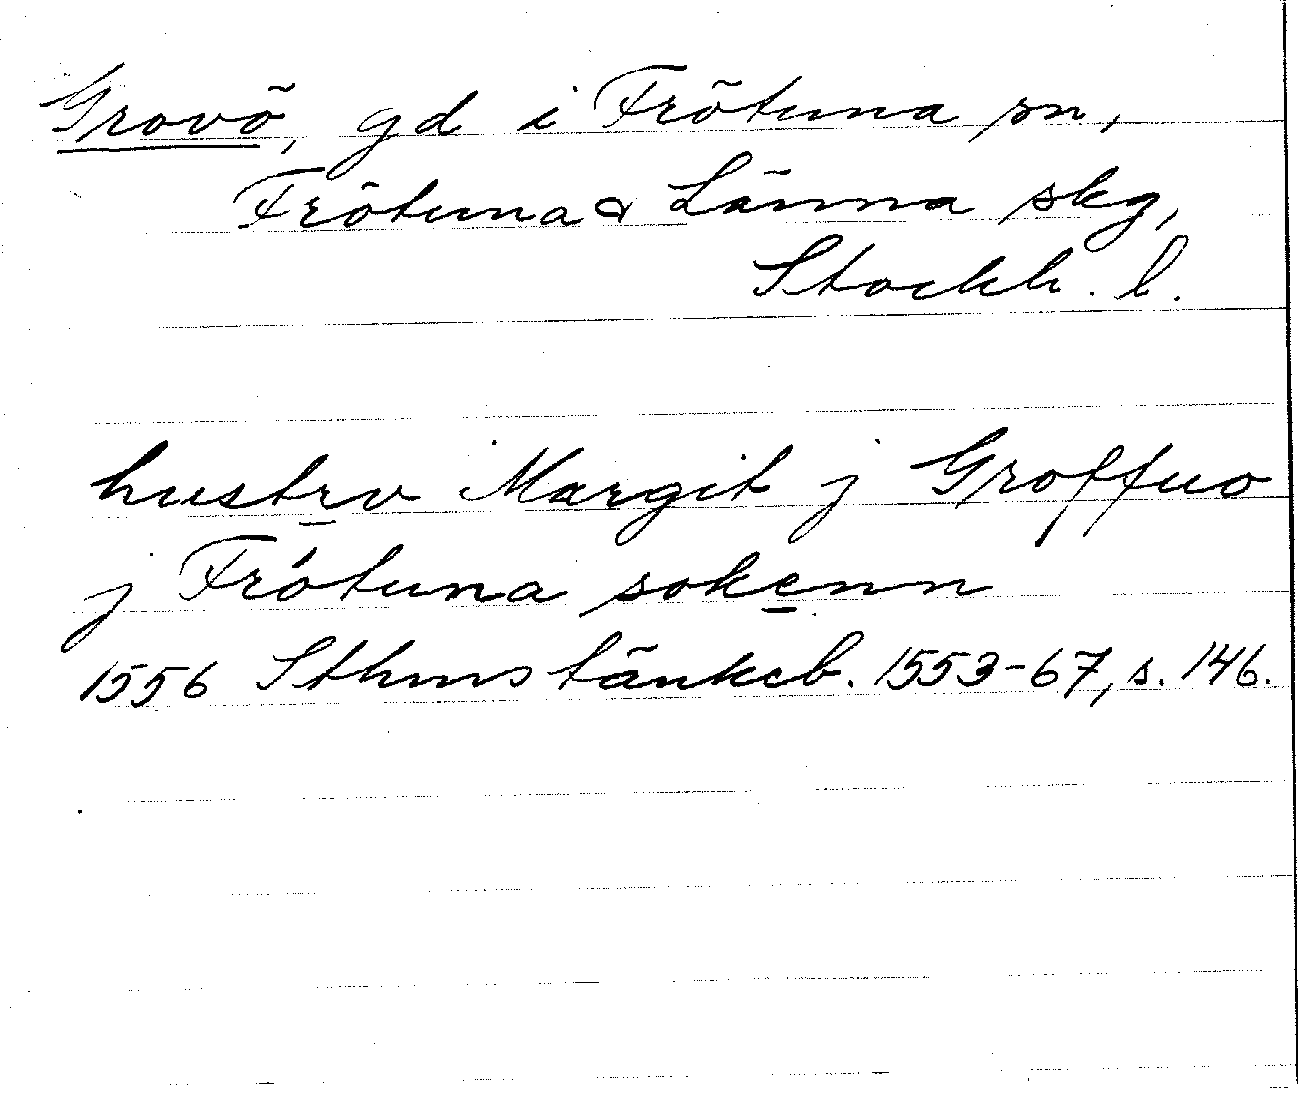 Grovö, gd i Frötuna sn,
Frötuna & Länna skg,
Stockh. l.
hustrv Margit j Groffuo
j Frótuna sokenn
1556 Sthms tänkeb. 1553-67, s. 146.